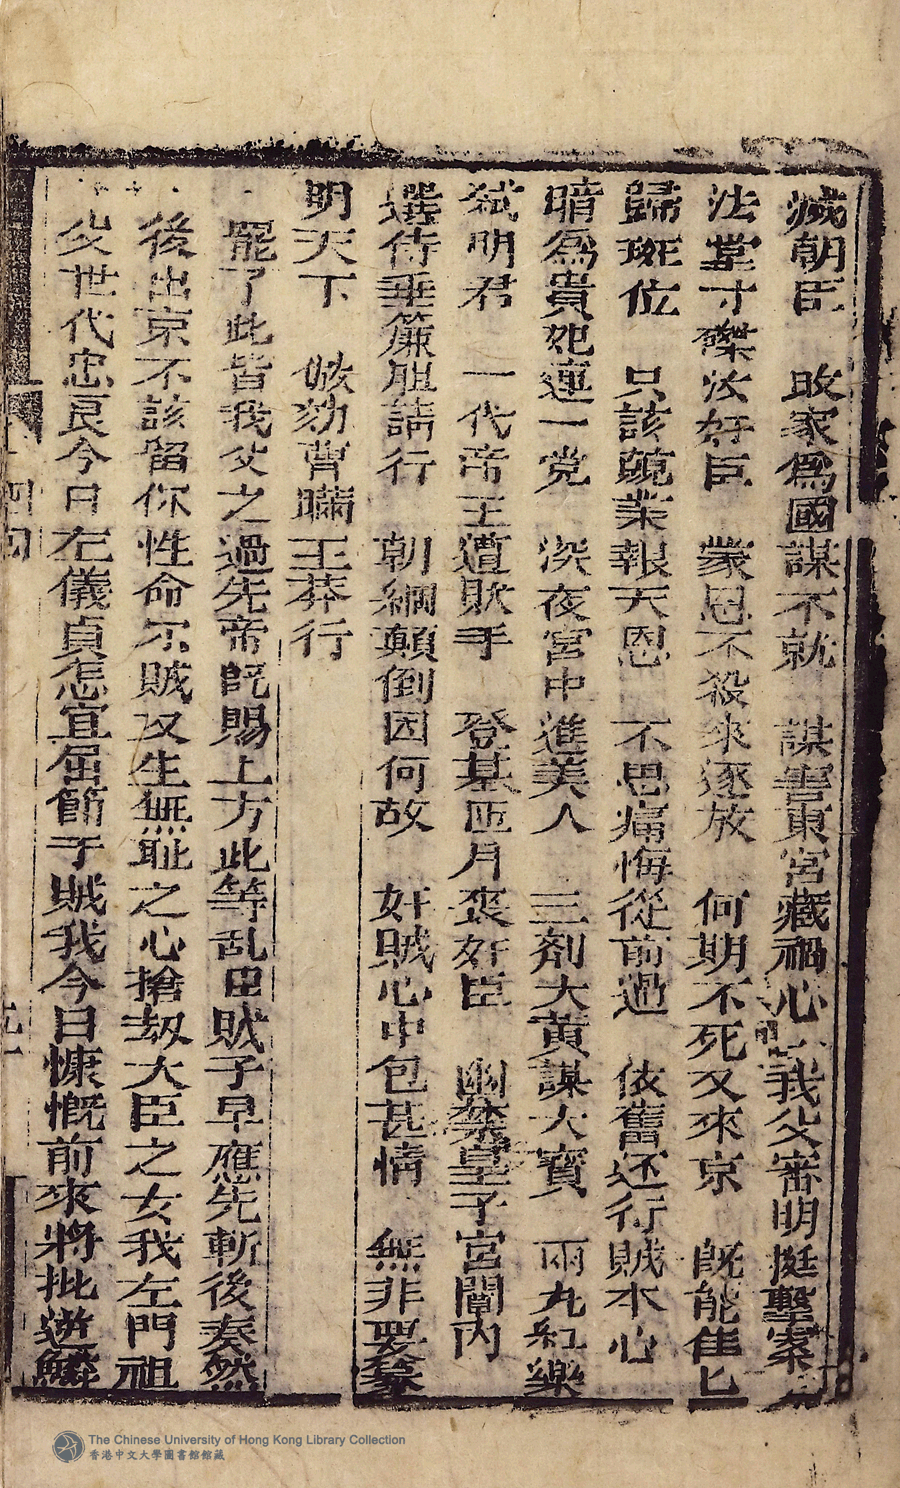 滅朝臣　敗家爲國謀不就　謀害東宮藏禍心　我父審明挺擊案
法堂寸磔汝奸臣　蒙恩不殺來逐放　何期不死又來京　既能隹匕
歸班位　只該兢業報天恩　不思痛悔從前過　依舊还行賊本心
暗爲貴妃連一党　深夜宮中進美人　三劑大黄謀大寳　兩丸紅藥
弒明君　一代帝王遭欺手　登基匝月喪奸臣　幽禁皇子宮闈内
選侍垂簾胆請行　朝綱顛倒因何故　奸賊心中包甚情　無非要篡
明天下　㑊効曹瞞王莽行
罷了此皆我父之過先帝既賜上方此等乱臣賊子早應先斬後奏然
後出京不該留你性命尔賊又生無耻之心搶劫大臣之女我左門祖
父世代忠良今日左儀貞怎宜屈節于賊我今日慷慨前來將批逆鱗
四囘
The Chinese University of Hong Kong Library Collection
香港中文大學圖書館館藏